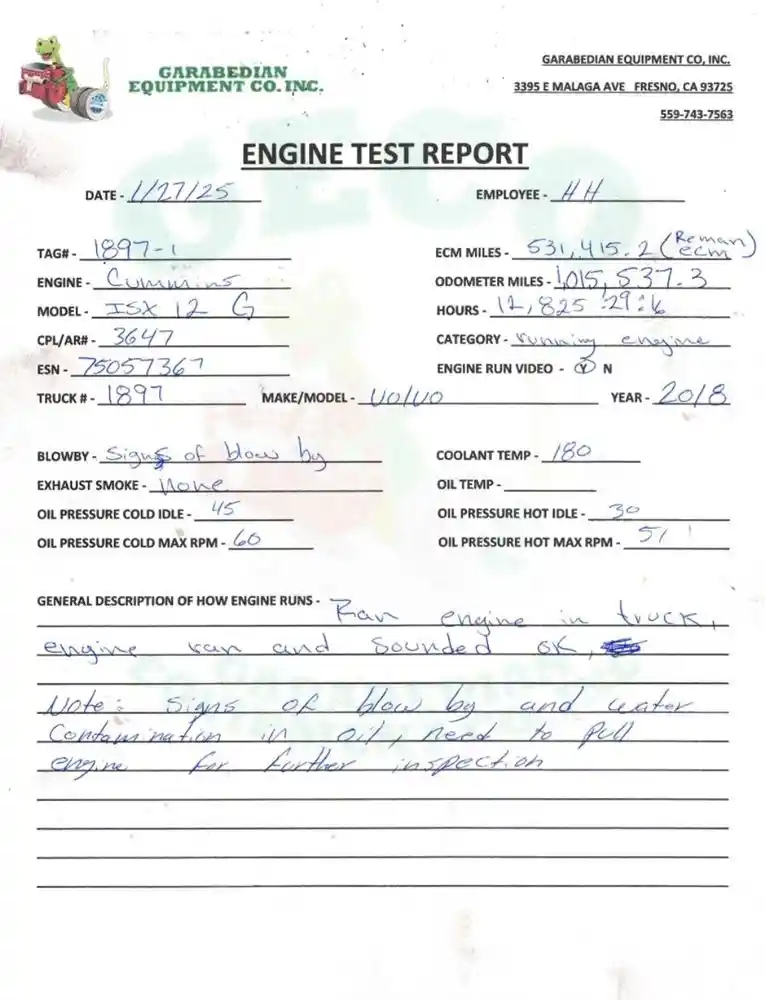 GARABEDIAN
EQUIPMENT CO. INC.
GARABEDIAN EQUIPMENT CO, INC.
3395 E MALAGA AVE FRESNO, CA 93725
559-743-7563
GECO
ENGINE TEST REPORT
DATE - 1/27/25 EMPLOYEE - HH
TAG# - 1897-1 ECM MILES - 531,415.2 (Reman ecm)
ENGINE - Cummins ODOMETER MILES - 1,015,537.3
MODEL - ISX 12 G HOURS - 12,825:29:16
CPL/AR# - 3647 CATEGORY - running engine
ESN - 75057367 ENGINE RUN VIDEO - Y N
TRUCK # - 1897 MAKE/MODEL - VOLVO YEAR - 2018
BLOWBY - Signs of blow by COOLANT TEMP - 180
EXHAUST SMOKE - None OIL TEMP -
OIL PRESSURE COLD IDLE - 45 OIL PRESSURE HOT IDLE - 30
OIL PRESSURE COLD MAX RPM - 60 OIL PRESSURE HOT MAX RPM - 51
GENERAL DESCRIPTION OF HOW ENGINE RUNS - Ran engine in truck,
engine ran and sounded ok,
Note: Signs of blow by and water
Contamination in oil, need to pull
engine for further inspection